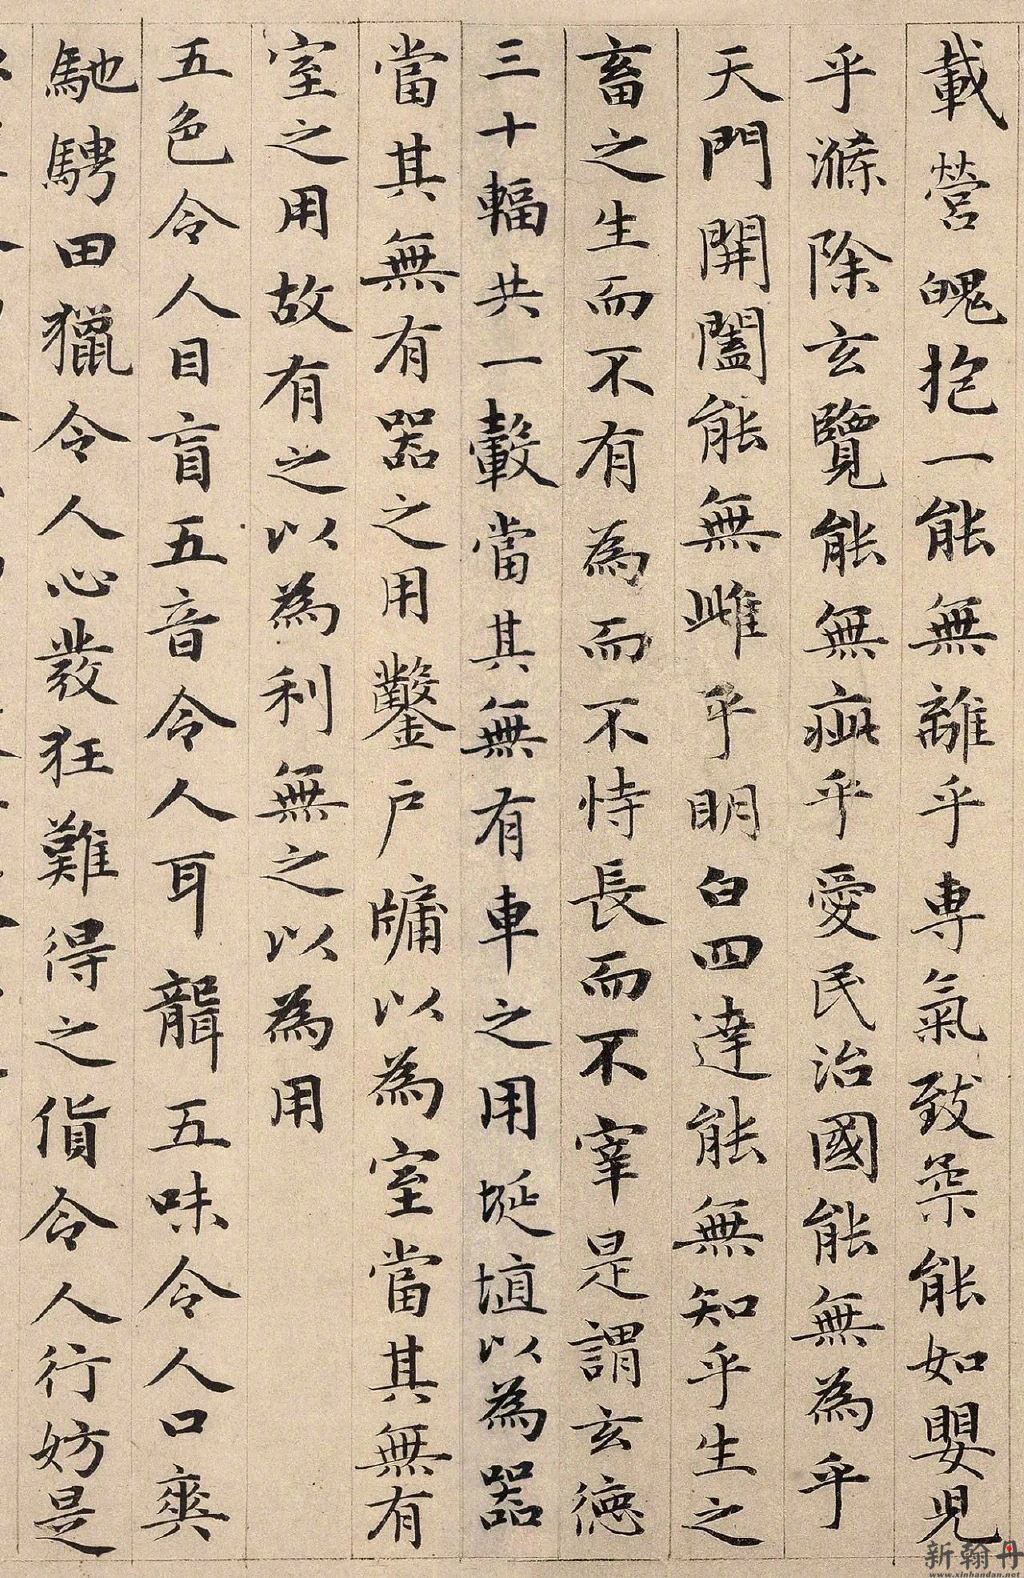 載營魄抱一能無離乎專氣致柔能如嬰兒
乎滌除玄覽能無疵乎愛民治國能無為乎
天門開闔能無雌乎明白四達能無知乎生之
畜之生而不有為而不恃長而不宰是謂玄德
三十輻共一轂當其無有車之用埏埴以為器
當其無有器之用鑿戶牖以為室當其無有
室之用故有之以為利無之以為用
五色令人目盲五音令人耳聾五味令人口爽
馳騁田獵令人心發狂難得之貨令人行妨是
新翰丹
www.xinhandan.net